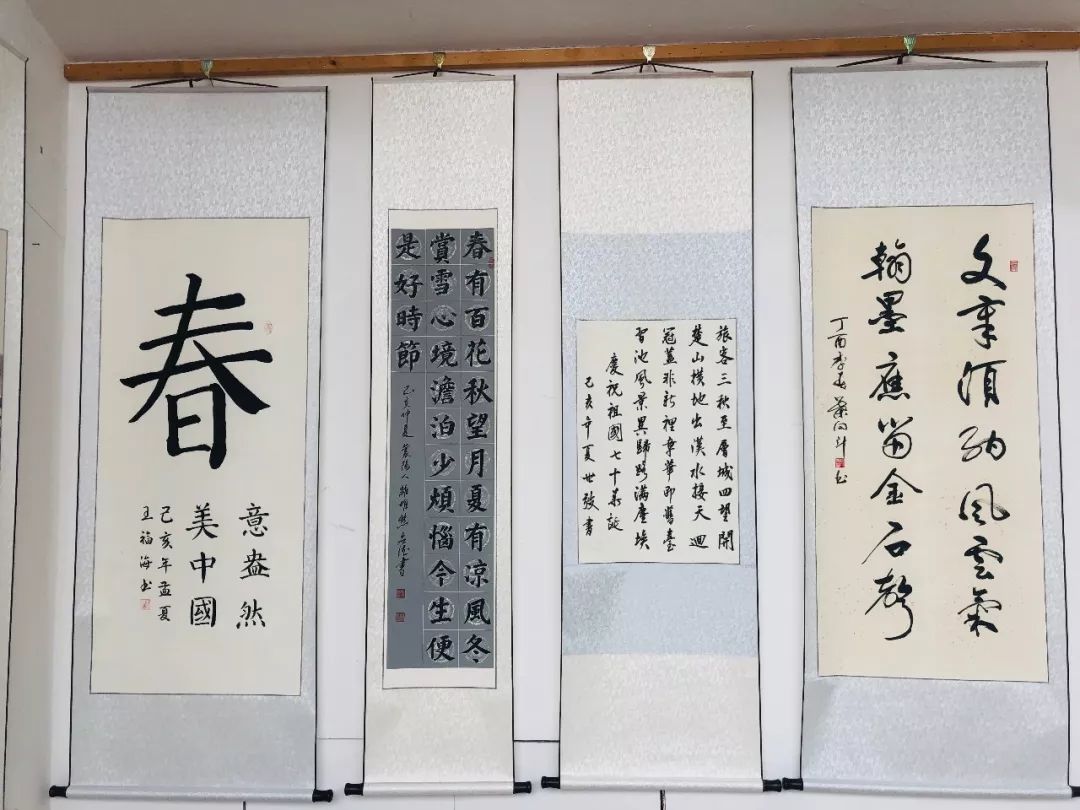 春
意盎然
美中國
己亥年孟夏
王福海书
春有百花秋望月夏有涼風冬
賞雪心境澹泊少煩惱今生便
是好時節
己亥仲夏襄陽人書
旅客三秋至層城四望開
楚山橫地出漢水接天迴
冠蓋非新裡章華即舊臺
習池風景異歸路滿塵埃
慶祝祖國七十華誕
己亥年夏世發書
文章須納風雲氣
翰墨應留金石聲
丁酉季春